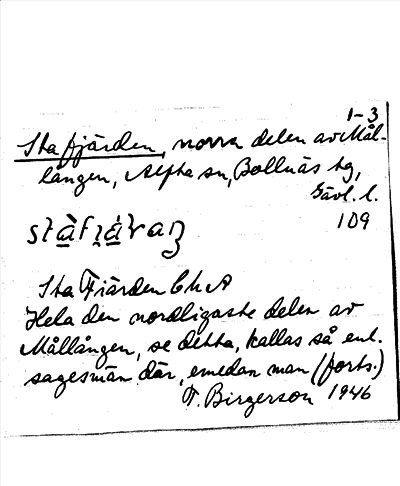 1-3
Sta fjärden, norra delen av Mål-
lången, Alfta sn, Bollnäs tg,
Gävl. l.
109
Sta Fiärden Ch A
Hela den nordligaste delen av
Mållången, se detta, kallas så enl.
sagesmän där, emedan man (forts.)
F. Birgerson 1946